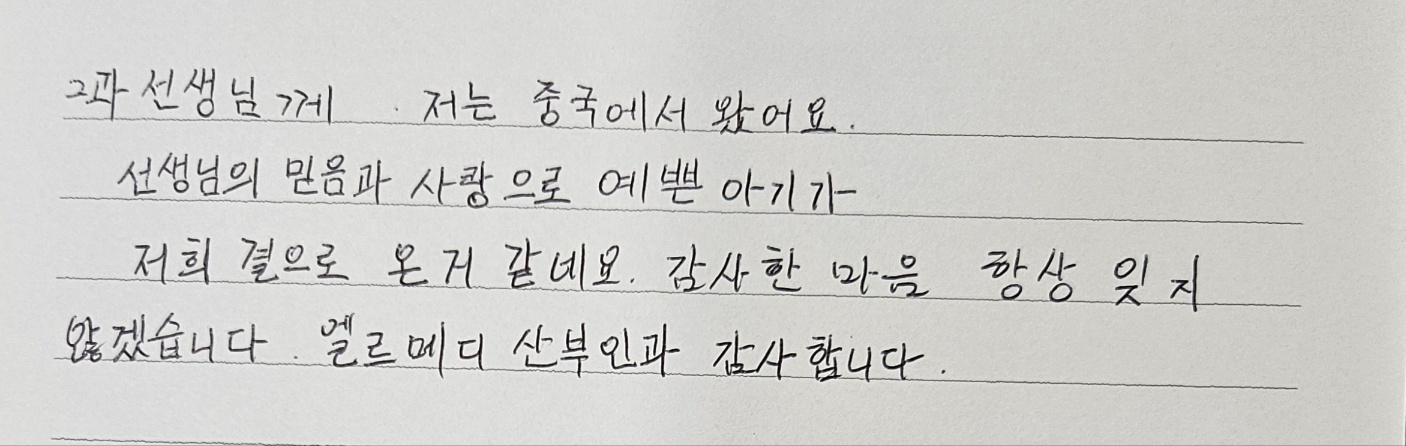 2과 선생님께. 저는 중국에서 왔어요.
선생님의 믿음과 사랑으로 예쁜 아기가
저희 곁으로 온거 같네요. 감사한 마음 항상 잊지
않겠습니다. 엘르메디 산부인과 감사합니다.